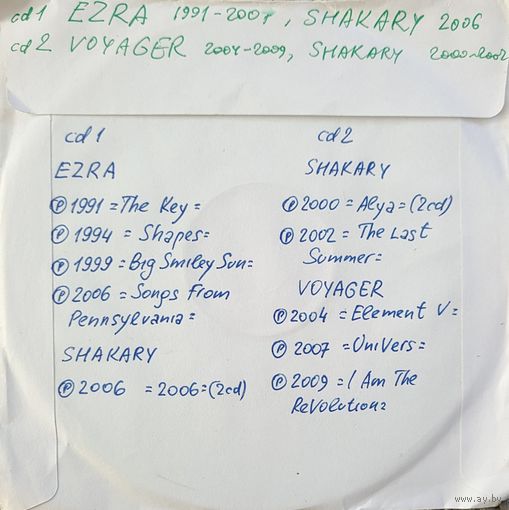 cd1 EZRA 1991-2007, SHAKARY 2006
cd2 VOYAGER 2004-2009, SHAKARY 2000-2002
cd1
EZRA
℗ 1991 =The Key=
℗ 1994 = Shapes=
℗ 1999 = Big Smiley Sun=
℗ 2006 = Songs From
Pennsylvania =
SHAKARY
℗ 2006 = 2006=(2cd)
cd2
SHAKARY
℗ 2000 = Alya =(2cd)
℗ 2002 = The Last
Summer=
VOYAGER
℗ 2004 = Element V =
℗ 2007 = UniVers =
℗ 2009 = I Am The
ReVolution=
www.ay.by